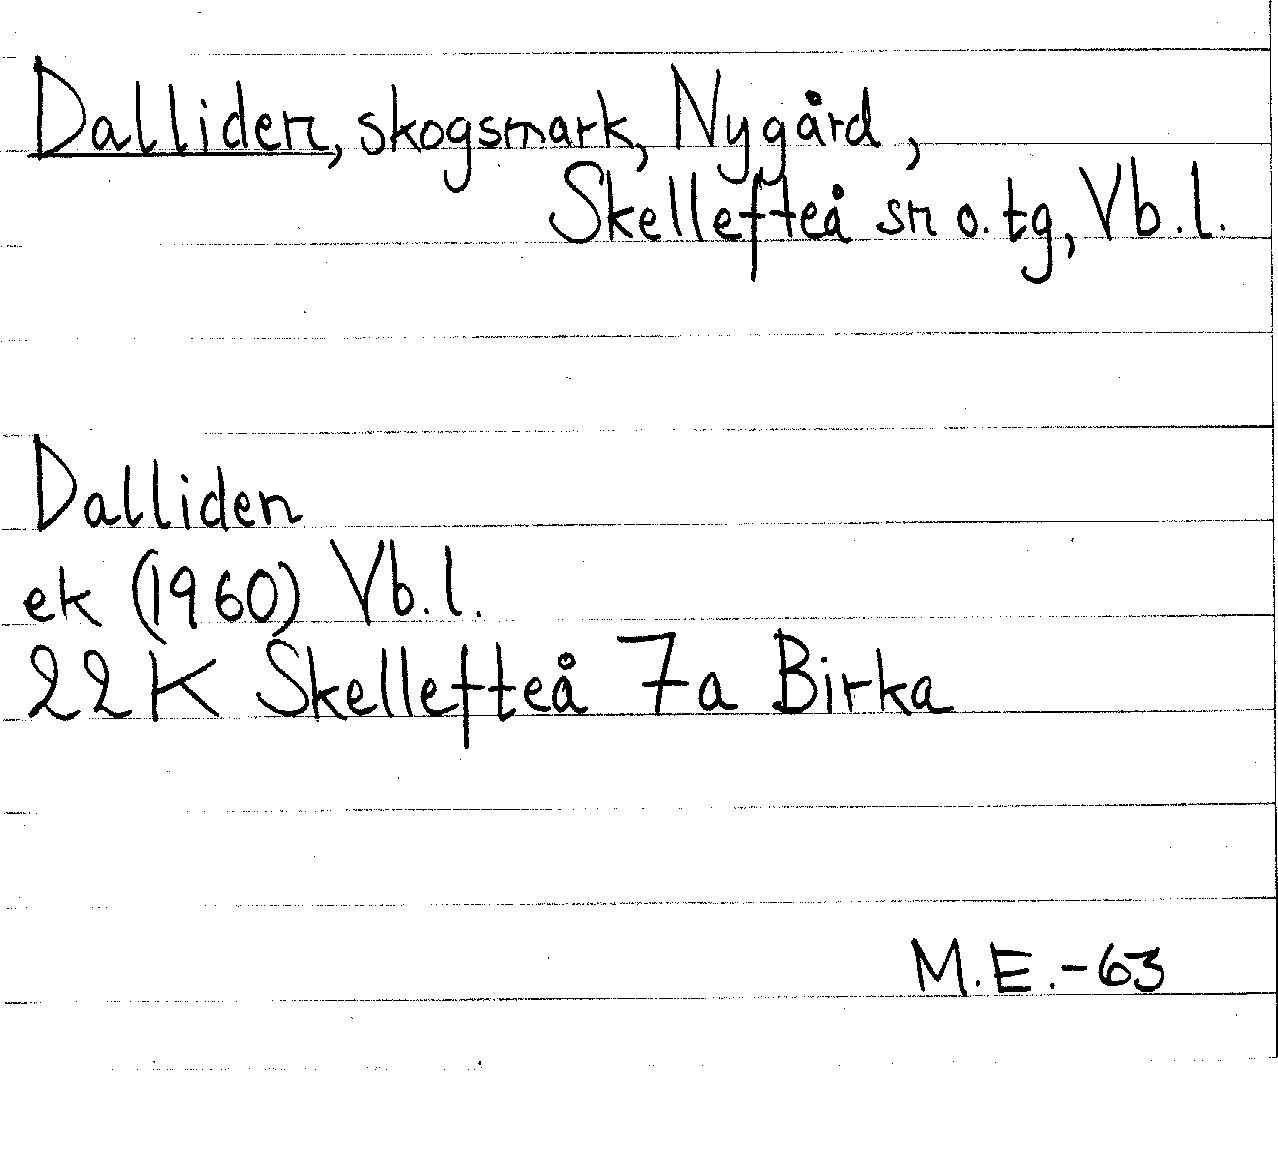 Dalliden, skogsmark, Nygård,
Skellefteå sn o. tg, Vb.l.
Dalliden
ek (1960) Vb.l.
22 K Skellefteå 7a Birka
M.E.-63